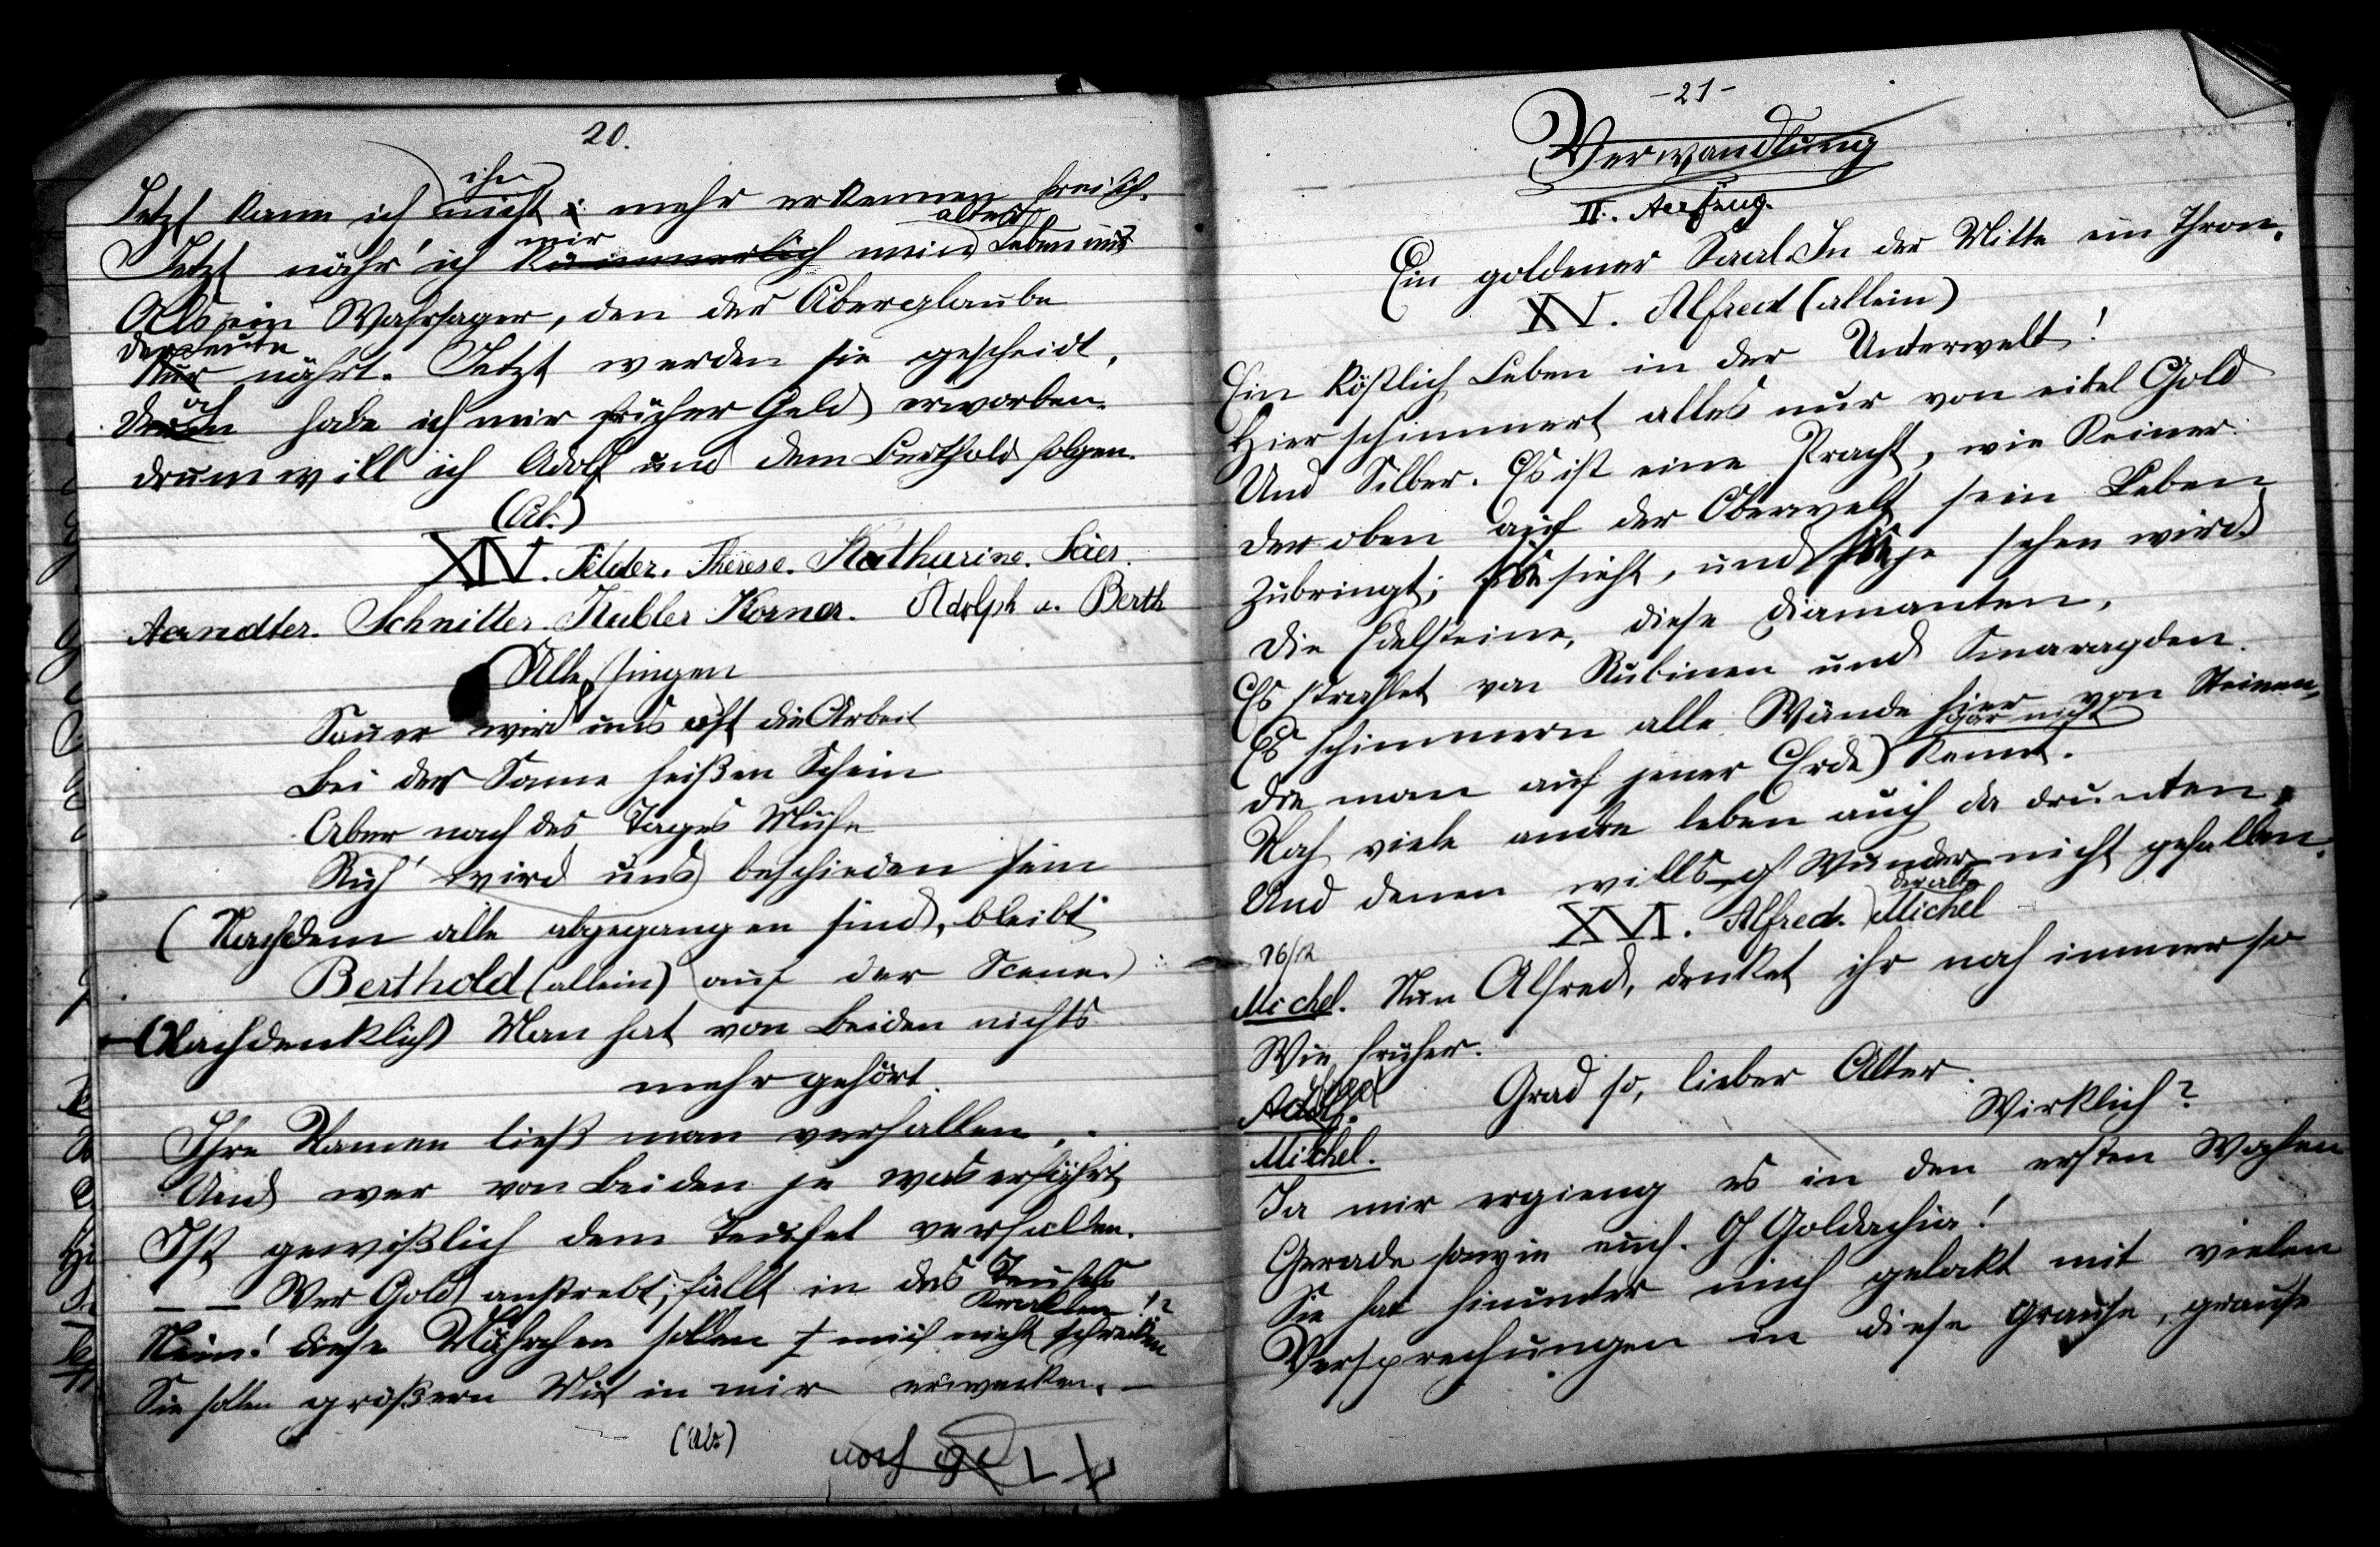 20.
Jetzt kann ich ihn nicht mehr erkennen freilich.
Jetzt nähr' ich mir kümmerlich mein altes Leben nur
Als ein Wahrsager, den der Aberglaube
der Leute
Nur nährt. Jetzt werden sie gescheidt,
habe ich mir früher Geld erworben.
drum will ich Adolf und dem Berthold folgen.
(Ab.)
XIV. Felder. Therese. Katharine. Säer.
Aerndter. Schnitter. Kübler Korner. Adolph u. Berth
Alle singen
Sauer wird uns oft die Arbeit
Bei der Sonne heißen Schein
Aber nach des Tages Mühe
Ruh' wird uns beschieden sein
(Nachdem alle abgegangen sind, bleibt
Berthold (allein) auf der Scene.)
(Nachdenklich) Man hat von Beiden nichts
mehr gehört.
Ihre Namen ließ man verhallen,
Und wer von Beiden je was erfährt,
Ist gewißlich dem Teufel verfallen.
— — Wer Gold anstrebt, fällt in des Teufels
Krallen!?
Nein! diese Märchen sollen mich nicht schrecken
Sie sollen größern Mut in mir erwecken. —
(Ab.)
-21-
Verwandlung
II. Aufzug.
Ein goldener Saal. In der Mitte ein Thron.
XV. Alfred (allein)
Ein köstlich Leben in der Unterwelt!
Hier schimmert alles nur von eitel Gold
Und Silber. Es ist eine Pracht, wie Keiner
der oben auf der Oberwelt sein Leben
zubringt, sie sieht, und sie je sehen wird
Die Edelsteine, diese Diamanten,
Es strahlet von Rubinen und Smaragden.
Es schimmern alle Wände hier von Steinen,
die man auf jener Erde gar nicht kennt.
Noch viele andre leben auch da drunten,
Und denen wills, o Wunder nicht gefallen.
XVI. Alfred. der alte Michel
Michel. Nun Alfred, denket ihr noch immer so
Wie früher.
Alfred. Grad so, lieber Alter.
Michel. Wirklich?
Ja mir ergieng es in den ersten Wochen
Gerade sowie euch. O Goldachia!
Sie hat hinunter mich gelokt mit vielen
Versprechungen in diese grause, grause